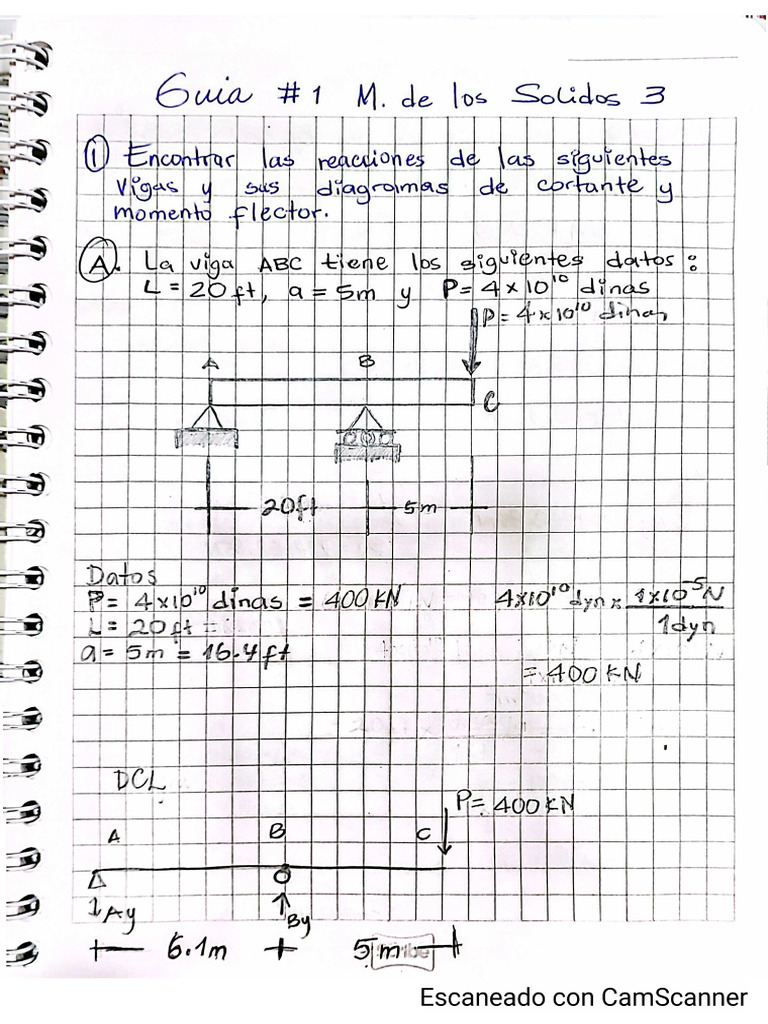 Guia #1 M. de los Solidos 3
① Encontrar las reacciones de las siguientes
vigas y sus diagramas de cortante y
momento flector.
Ⓐ. La viga ABC tiene los siguientes datos:
L = 20ft, a = 5m y P = 4×10¹⁰ dinas
P = 4×10¹⁰ dinas
A B
C
20ft 5m
Datos
P = 4×10¹⁰ dinas = 400 KN 4×10¹⁰ dyn × 1×10⁻⁵ N
L = 20ft = 1 dyn
a = 5m = 16.4ft
= 400 KN
DCL
P = 400 KN
A B C
Ay By
6.1m 5m
Escaneado con CamScanner